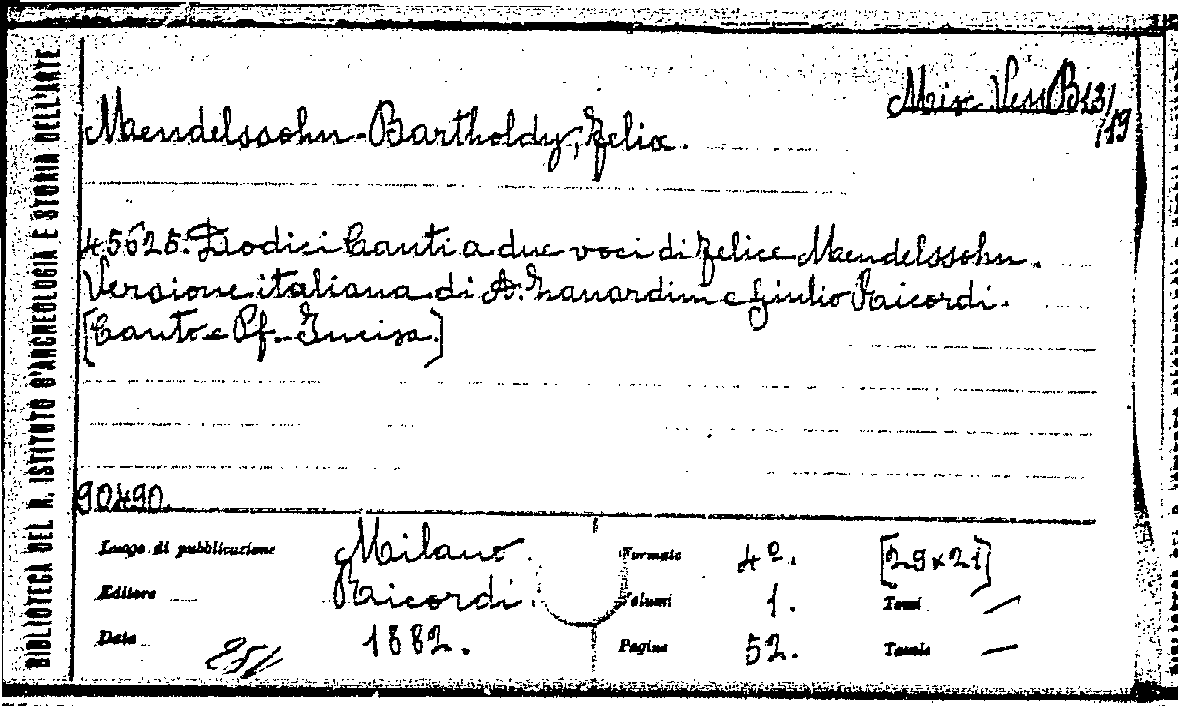 BIBLIOTECA DEL R. ISTITUTO D'ARCHEOLOGIA E STORIA DELL'ARTE.
Misc. Vess B13/
/19
Mendelssohn-Bartholdy, Felix.
45625. Dodici Canti a due voci di Felice Mendelssohn.
Versione italiana di A. Zanardini e Giulio Ricordi.
[Canto e Pf. Incisa.]
90490.
Luogo di pubblicazione Milano. Formato 4º. [29×21]
Editore Ricordi. Volumi 1. Tomi —
Data 1882. Pagine 52. Tavole —